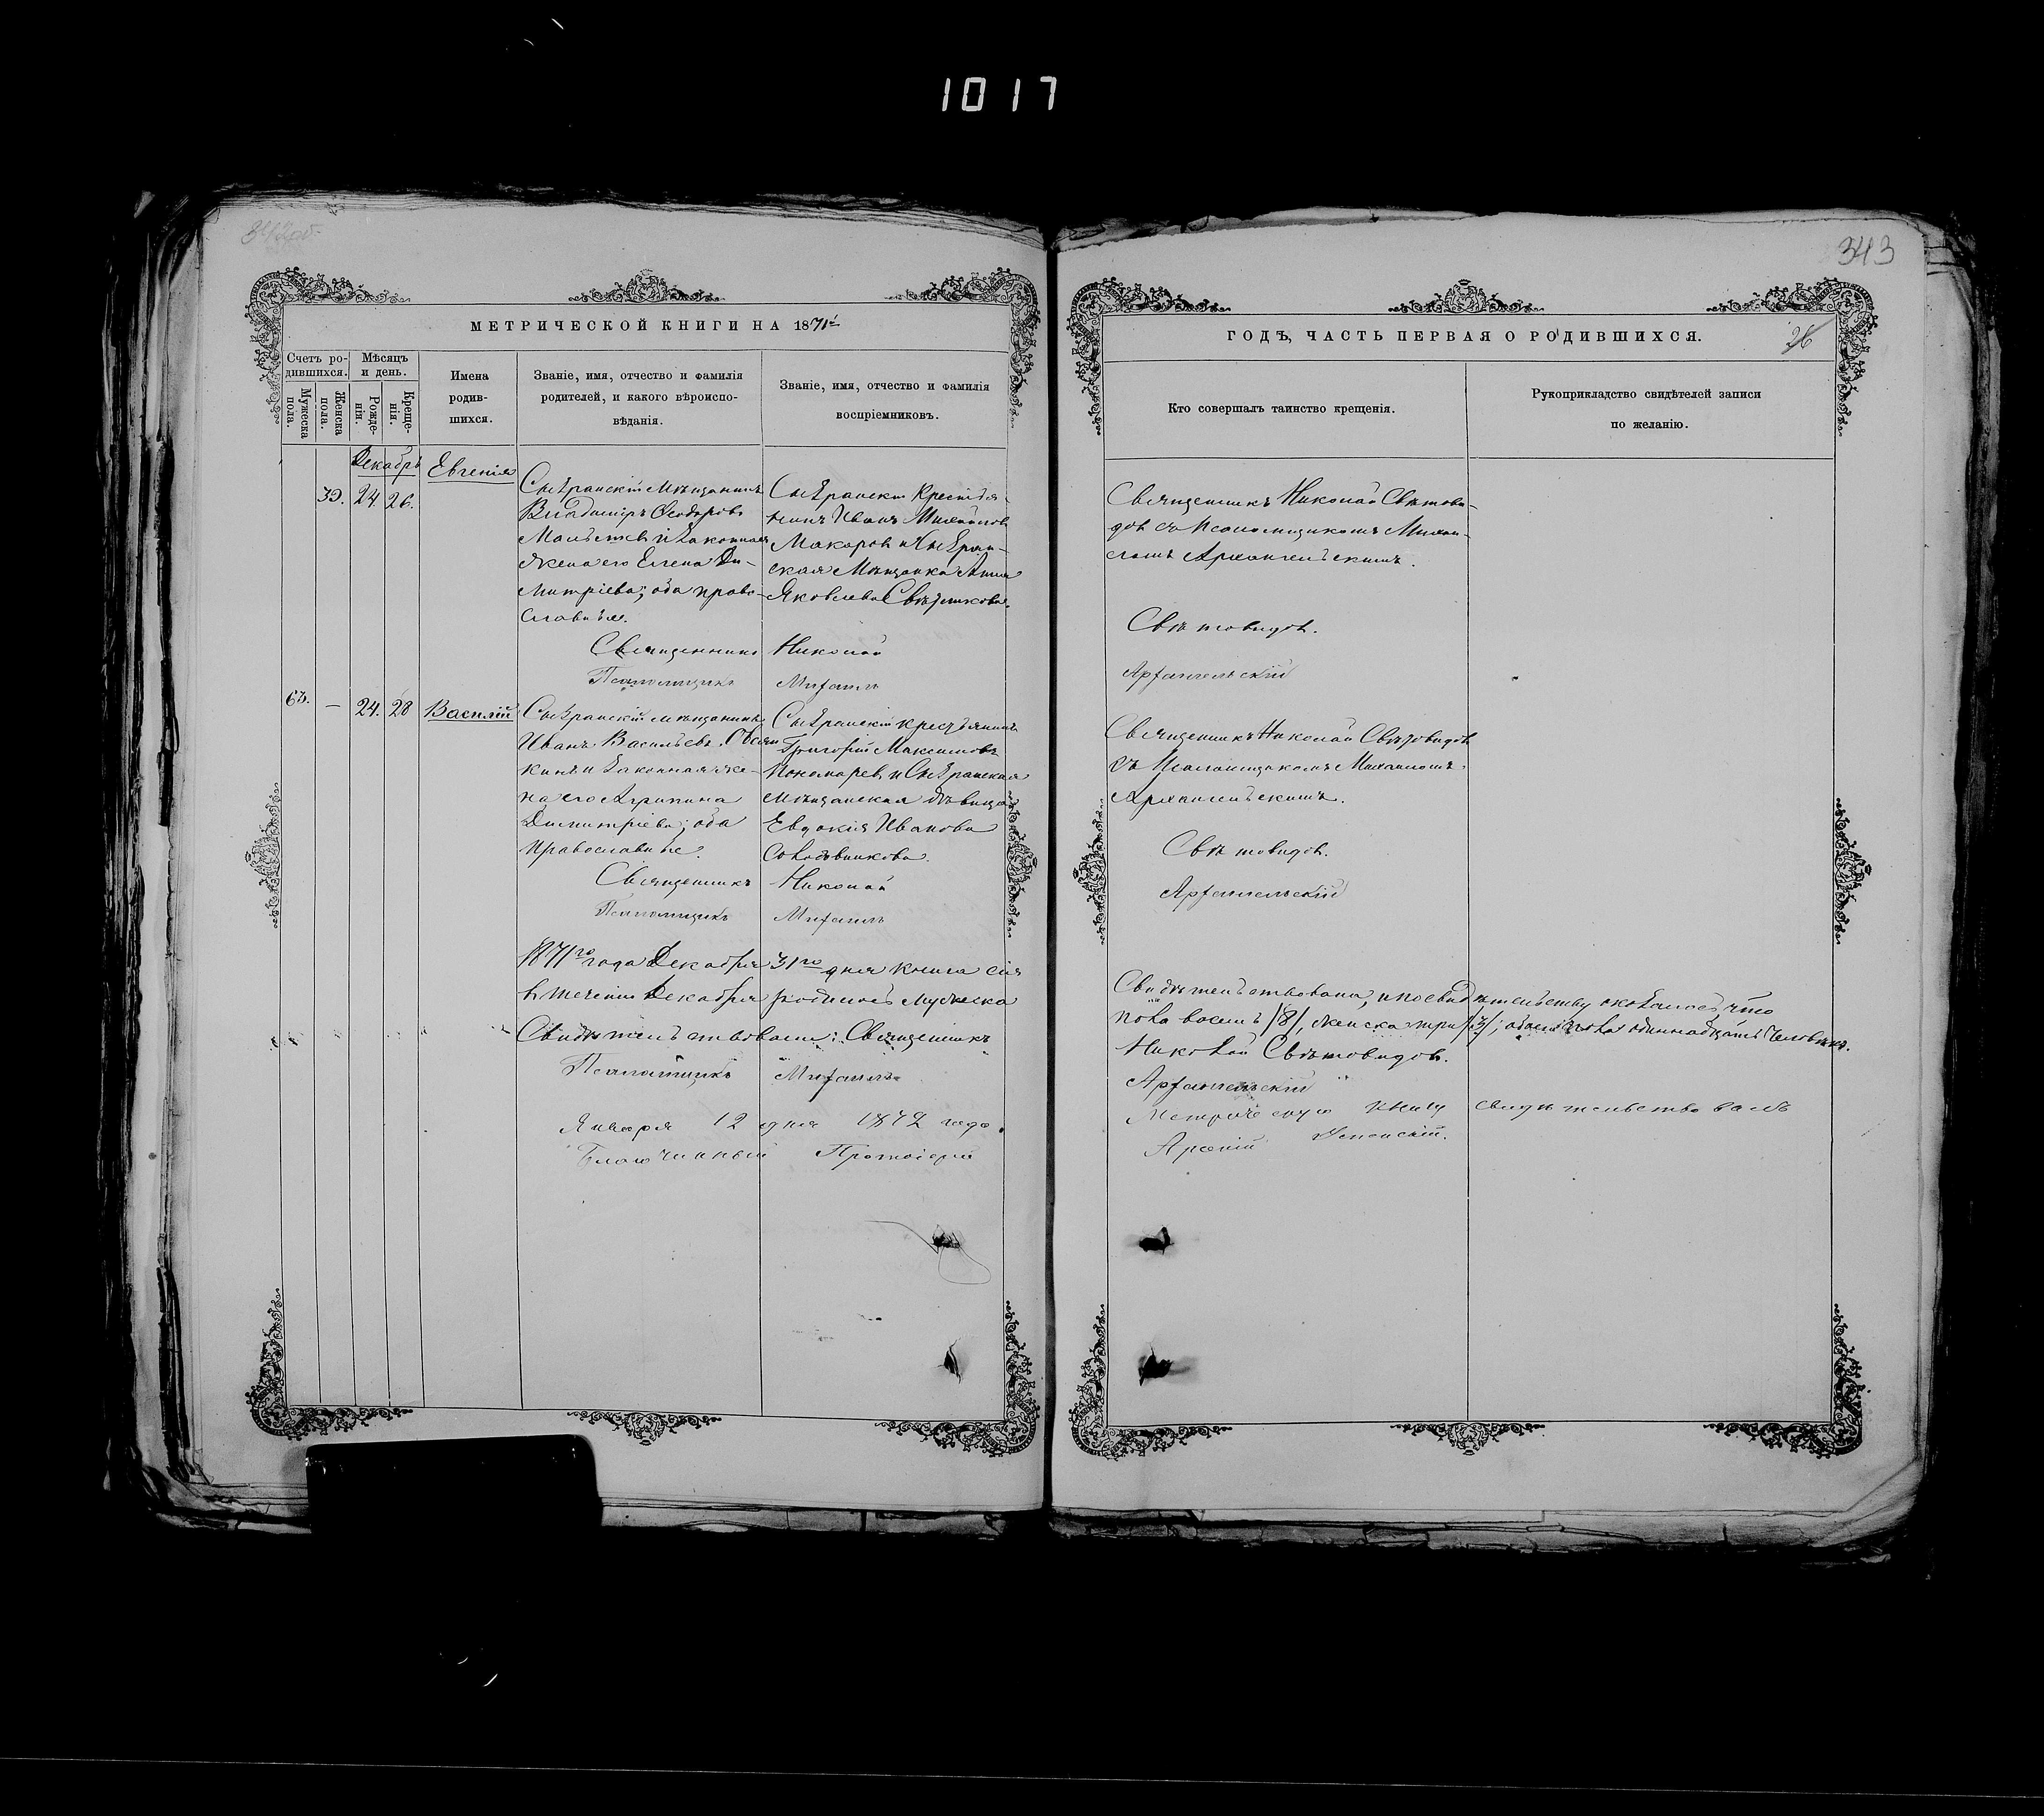 1017
342об.
МЕТРИЧЕСКОЙ КНИГИ НА 1871й
Счетъ ро-
дившихся.
Мужеска
пола.
Женска
пола.
Мѣсяцъ
и день.
Рожде-
нія.
Креще-
нія.
Имена
родив-
шихся.
Званіе, имя, отчество и фамилія
родителей, и какого вѣроиспо-
вѣданія.
Званіе, имя, отчество и фамилія
воспріемниковъ.
Декабрь
39. 24. 26.
Евгенія
Сызранскій мѣщанинъ
Владиміръ Ѳеодоровъ
и законная
жена его Елена Ди-
митріева; оба право-
славные.
Сызранскій крестья-
нинъ Иванъ Михайловъ
Макаровъ и Сызран-
ская мѣщанка Анна
Яковлева
Священникъ Николай
Псаломщикъ Михаилъ
63. — 24. 28
Василій
Сызранскій мѣщанинъ
Иванъ Васильевъ
и законная же-
на его Агрипина
Димитріева; оба
православные.
Сызранскій крестьянинъ
Григорій Максимовъ
Пономаревъ и Сызранская
мѣщанская дѣвица
Евдокія Иванова
Священникъ Николай
Псаломщикъ Михаилъ
1871го года Декабря 31го дня книга сія
в теченіи Декабря родилось мужеска
Свидѣтельствовали: Священникъ
Псаломщикъ Михаилъ
Января 12 дня 1872 года.
Благочинный Протоіерей
343
ГОДЪ, ЧАСТЬ ПЕРВАЯ О РОДИВШИХСЯ.
26
Кто совершалъ таинство крещенія.
Рукоприкладство свидѣтелей записи
по желанію.
Священникъ Николай Свѣтови-
довъ съ Псаломщикомъ Михаи-
ломъ Архангельскимъ.
Свѣтовидовъ.
Архангельскій
Священникъ Николай Свѣтовидовъ
съ Псаломщикомъ Михаиломъ
Архангельскимъ.
Свѣтовидовъ.
Архангельскій
Свидѣтельствована, и по свидѣтельству оказалось что
пола восемь /8/, женска три /3/; обоего пола одиннадцать человѣкъ.
Николай Свѣтовидовъ.
Архангельскій
Метрическую книгу свидѣтельствовалъ
Арсеній Успенскій.